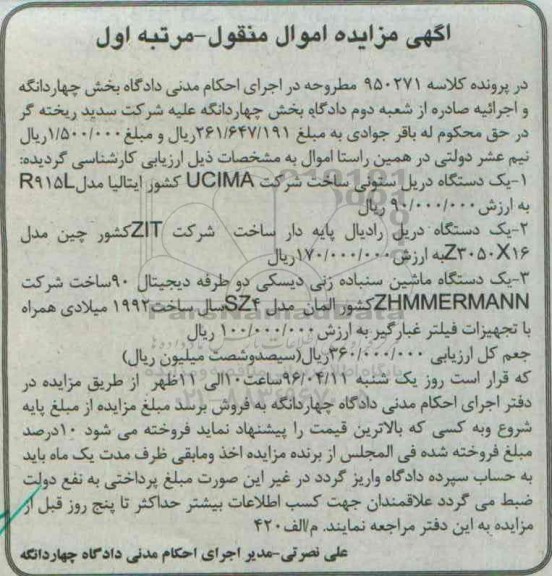 آگهی مزایده اموال منقول-مرتبه اول
در پرونده کلاسه ۹۵۰۲۷۱ مطروحه در اجرای احکام مدنی دادگاه بخش چهاردانگه
و اجرائیه صادره از شعبه دوم دادگاه بخش چهاردانگه علیه شرکت سدید ریخته گر
در حق محکوم له باقر جوادی به مبلغ ۲۶۱/۶۴۷/۱۹۱ریال و مبلغ ۱/۵۰۰/۰۰۰ریال
نیم عشر دولتی در همین راستا اموال به مشخصات ذیل ارزیابی کارشناسی گردیده:
۱-یک دستگاه دریل ستونی ساخت شرکت UCIMA کشور ایتالیا مدل R۹۱۵L
به ارزش ۹۰/۰۰۰/۰۰۰ ریال
۲-یک دستگاه دریل رادیال پایه دار ساخت شرکت ZITکشور چین مدل
Z۳۰۵۰X۱۶به ارزش ۱۷۰/۰۰۰/۰۰۰ریال
۳-یک دستگاه ماشین سنباده زنی دیسکی دو طرفه دیجیتال ۹۰ساخت شرکت
ZHMMERMANNکشور المان مدل SZ۴سال ساخت۱۹۹۲ میلادی همراه
با تجهیزات فیلتر غبارگیر به ارزش ۱۰۰/۰۰۰/۰۰۰ ریال
جعم کل ارزیابی ۳۶۰/۰۰۰/۰۰۰ریال(سیصدوشصت میلیون ریال)
که قرار است روز یک شنبه ۹۶/۰۴/۱۱ساعت۱۰الی ۱۱ظهر از طریق مزایده در
دفتر اجرای احکام مدنی دادگاه چهاردانگه به فروش برسد مبلغ مزایده از مبلغ پایه
شروع وبه کسی که بالاترین قیمت را پیشنهاد نماید فروخته می شود ۱۰درصد
مبلغ فروخته شده فی المجلس از برنده مزایده اخذ ومابقی ظرف مدت یک ماه باید
به حساب سپرده دادگاه واریز گردد در غیر این صورت مبلغ پرداختی به نفع دولت
ضبط می گردد علاقمندان جهت کسب اطلاعات بیشتر حداکثر تا پنج روز قبل از
مزایده به این دفتر مراجعه نمایند. م/الف۴۲۰
علی نصرتی-مدیر اجرای احکام مدنی دادگاه چهاردانگه